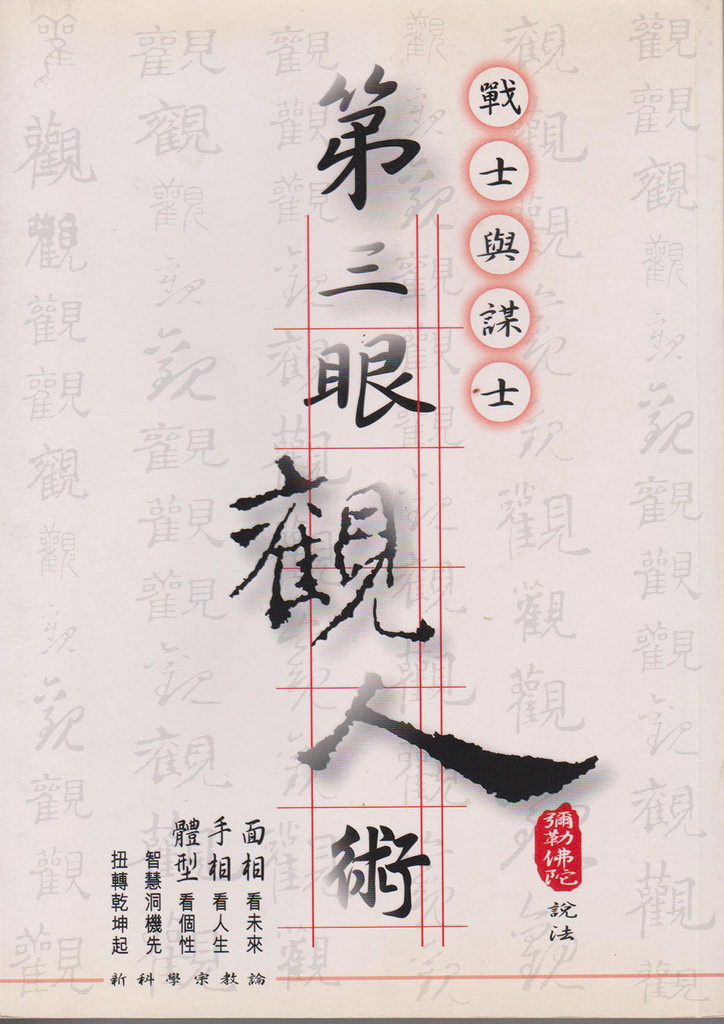 戰士與謀士
第三眼觀人術
彌勒佛陀
說法
面相看未來
手相看人生
體型看個性
智慧洞機先
扭轉乾坤起
新科學宗教論